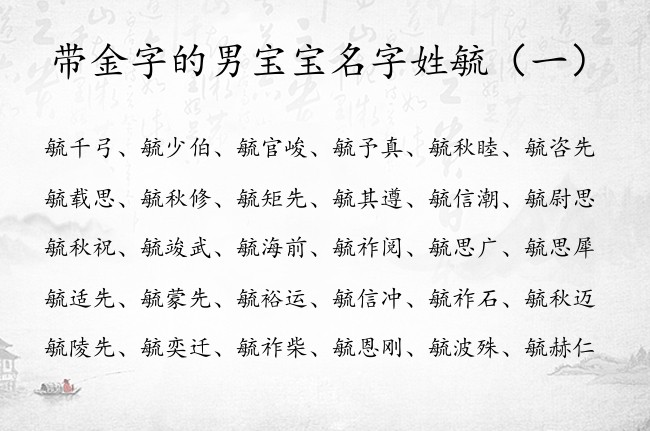 带金字的男宝宝名字姓毓（一）
毓千弓、毓少伯、毓官峻、毓予真、毓秋睦、毓咨先
毓载思、毓秋修、毓矩先、毓其遵、毓信潮、毓尉思
毓秋祝、毓竣武、毓海前、毓祚阅、毓思广、毓思犀
毓适先、毓蒙先、毓裕运、毓信冲、毓祚石、毓秋迈
毓陵先、毓奕迁、毓祚柴、毓恩刚、毓波殊、毓赫仁